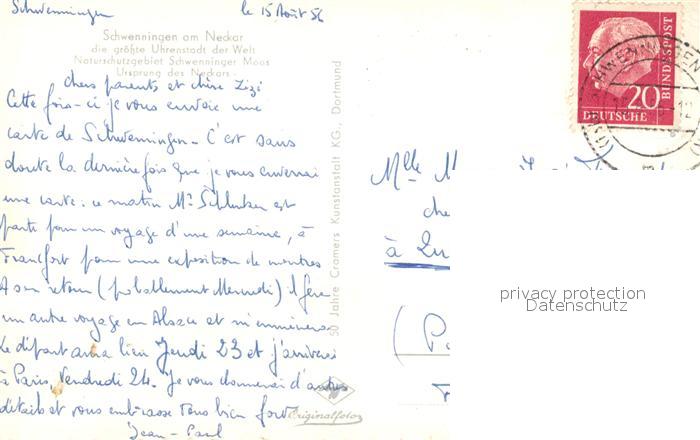 Schwenningen le 15 Août 56
Schwenningen am Neckar
die größte Uhrenstadt der Welt
Naturschutzgebiet Schwenninger Moos
Ursprung des Neckars
chers parents et chère Zizi
Cette fois-ci je vous envoie une
carte de Schwenningen - C'est sans
doute la dernière fois que je vous enverrai
une carte. ce matin Mr est
parti pour un voyage d'une semaine, à
Francfort pour une exposition de montres
A son retour (probablement Mercredi) il fera
un autre voyage en Alsace et m'emmènera.
Le départ aura lieu Jeudi 23 et j'arriverai
à Paris, Vendredi 24. Je vous donnerai d'autres
détails et vous embrasse tous bien fort
Jean-Paul
50 Jahre Cramers Kunstanstalt KG., Dortmund
Originalfoto
20
DEUTSCHE
BUNDESPOST
SCHWENNINGEN
Mlle M
che
à
(Pa
privacy protection
Datenschutz